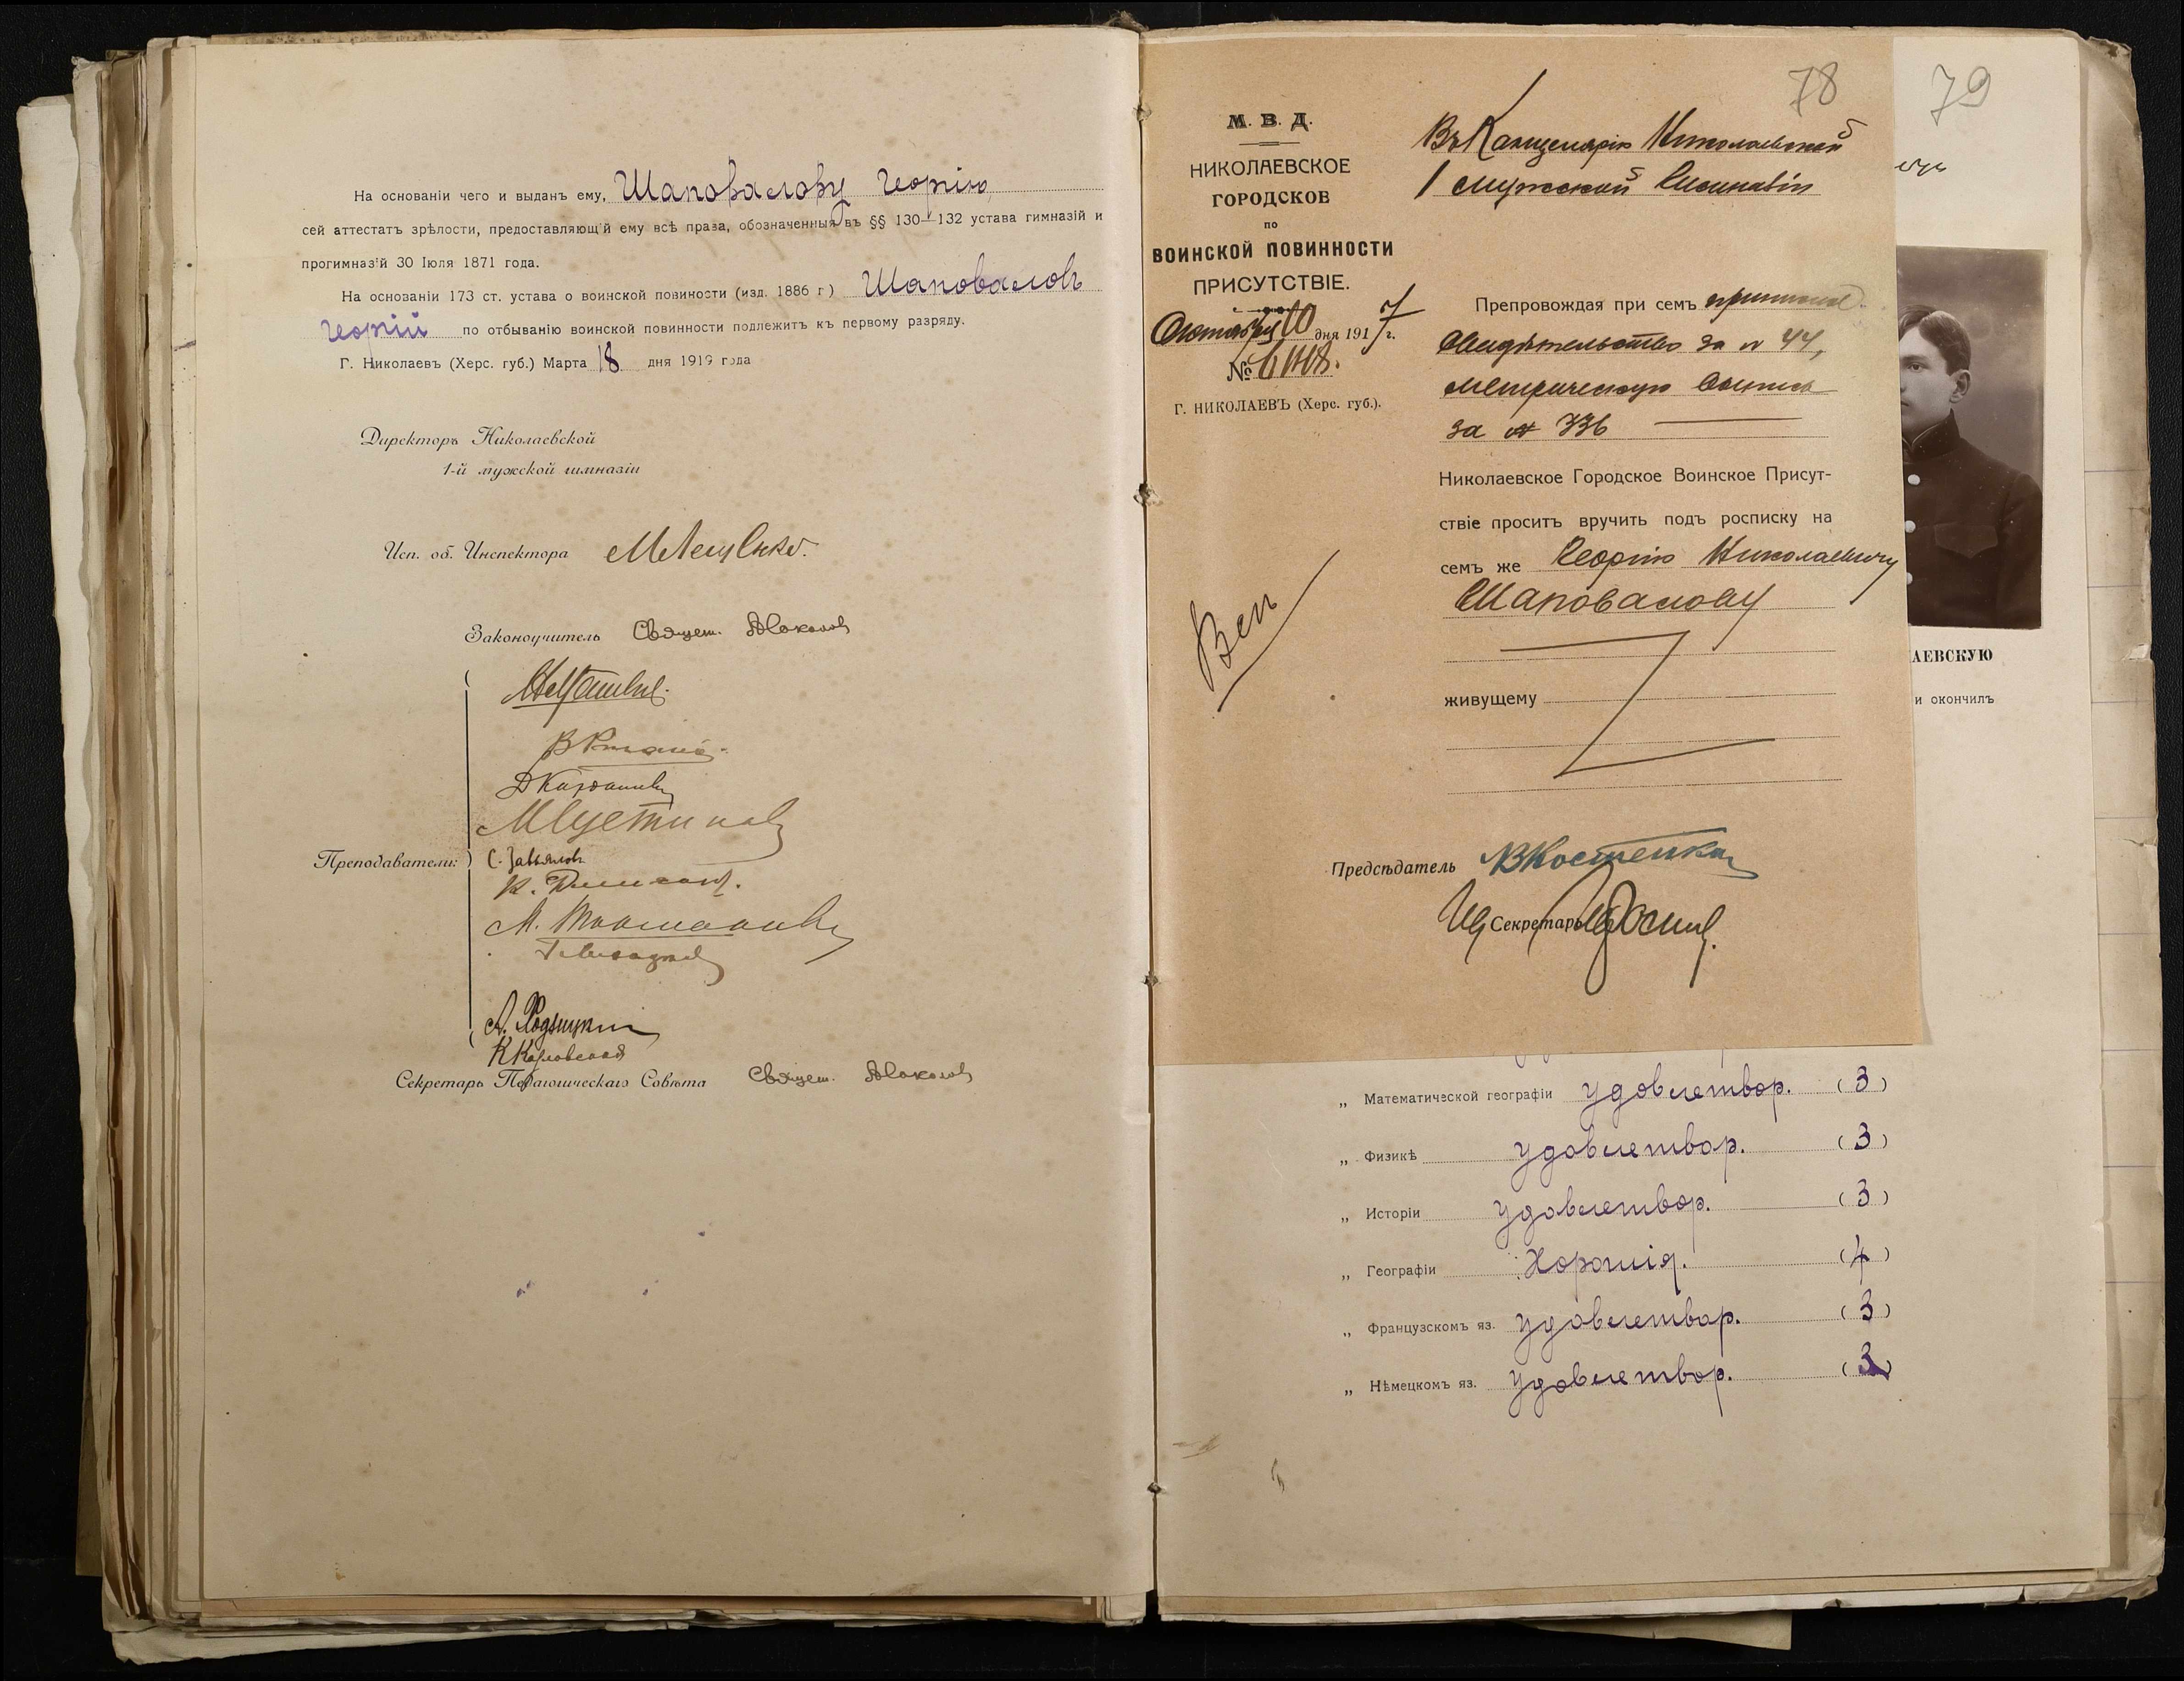 На основаніи чего и выданъ ему, Шаповалову Георгію
сей аттестатъ зрѣлости, предоставляющій ему всѣ права, обозначенныя въ §§ 130–132 устава гимназій и
прогимназій 30 Іюля 1871 года.
На основаніи 173 ст. устава о воинской повиности (изд. 1886 г.) Шаповаловъ
Георгій по отбыванію воинской повинности подлежитъ къ первому разряду.
Г. Николаевъ (Херс. губ.) Марта 18 дня 1919 года
Директоръ Николаевской
1-й мужской гимназіи
Исп. об. Инспектора
Законоучитель Священ.
Преподаватели:
С. Завьяловъ
Секретарь Педагогическаго Совѣта Священ.
78
79
М. В. Д.
НИКОЛАЕВСКОЕ
ГОРОДСКОЕ
по
ВОИНСКОЙ ПОВИННОСТИ
ПРИСУТСТВІЕ.
Октября 10 дня 1917 г.
№
Г. НИКОЛАЕВЪ (Херс. губ.).
Въ Канцелярію Николаевской
1 мужской Гимназіи
Препровождая при семъ
свидѣтельство за № 44,
метрическую выпись
за № 336
Николаевское Городское Воинское Присут-
ствіе проситъ вручить подъ росписку на
семъ же Георгію Николаевичу
Шаповалову
живущему
Предсѣдатель ВКостенко
Секретарь
АЕВСКУЮ
и окончилъ
„ Математической географіи удовлетвор. (3)
„ Физикѣ удовлетвор. (3)
„ Исторіи удовлетвор. (3)
„ Географіи Хорошія. (4)
„ Французскомъ яз. удовлетвор. (3)
„ Нѣмецкомъ яз. удовлетвор. (3)